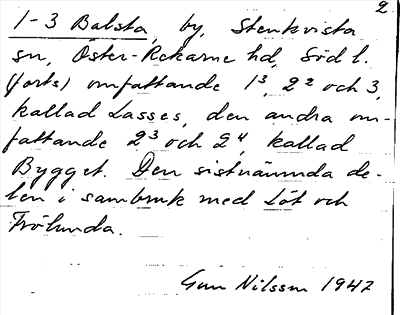 2
1-3 Balsta, by, Stenkvista
sn, Öster-Rekarne hd, Söd l.
(forts) omfattande 1³, 2² och 3,
kallad Lasses, den andra om-
fattande 2³ och 2⁴, kallad
Bygget. Den sistnämnda de-
len i sambruk med Löt och
Frölunda.
Gun Nilsson 1947